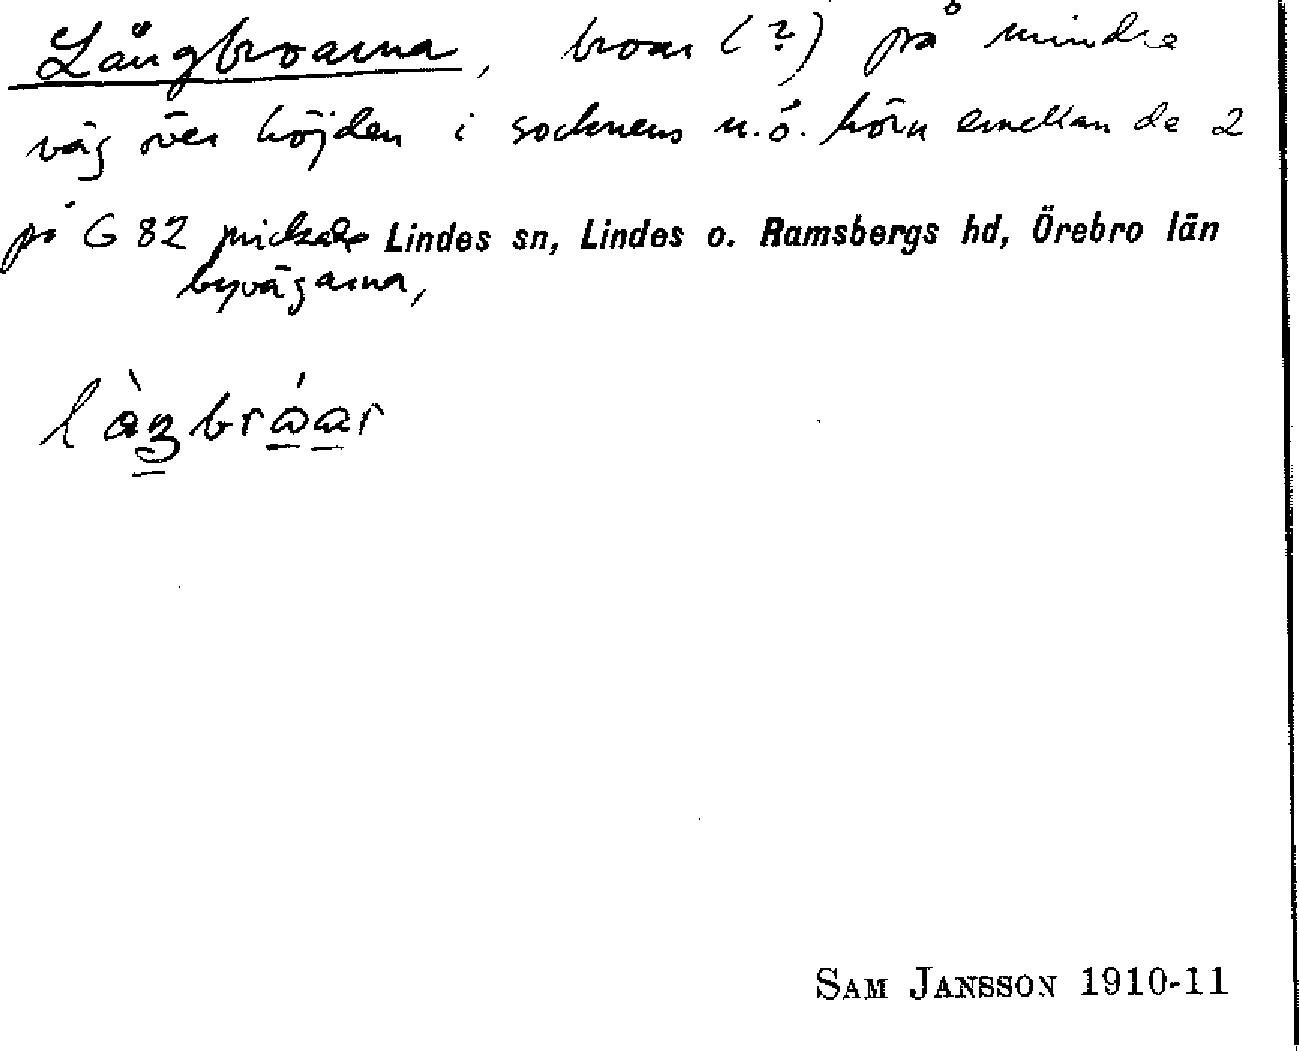 Långbroarna, broar (?) på mindre
väg över höjden i socknens n.ö. hörn emellan de 2
på G 82 prickade Lindes sn, Lindes o. Ramsbergs hd, Örebro län
byvägarna,
SAM JANSSON 1910-11